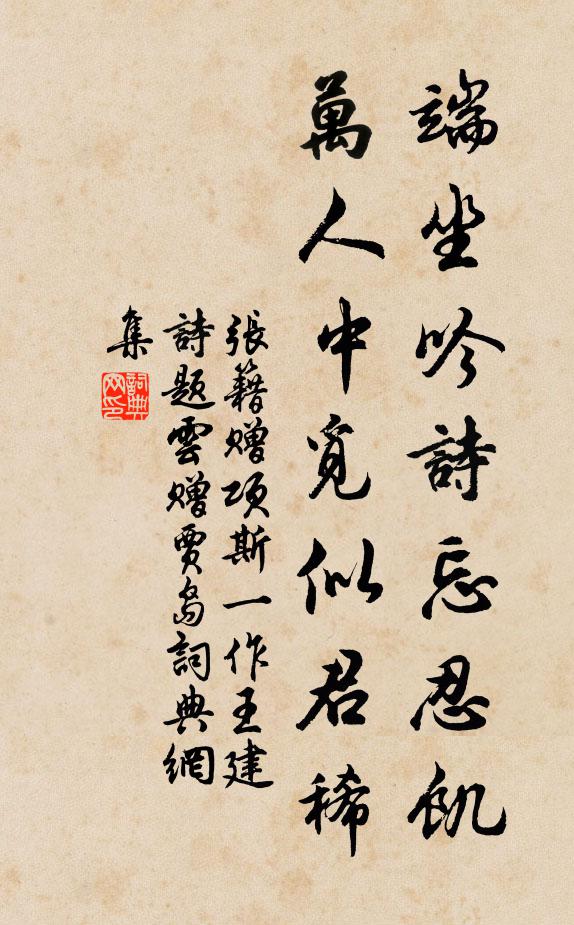 端坐吟詩忘忍飢
萬人中覓似君稀
張籍贈項斯一作王建
詩題雲贈賈島詞典網
集
詞典
网印